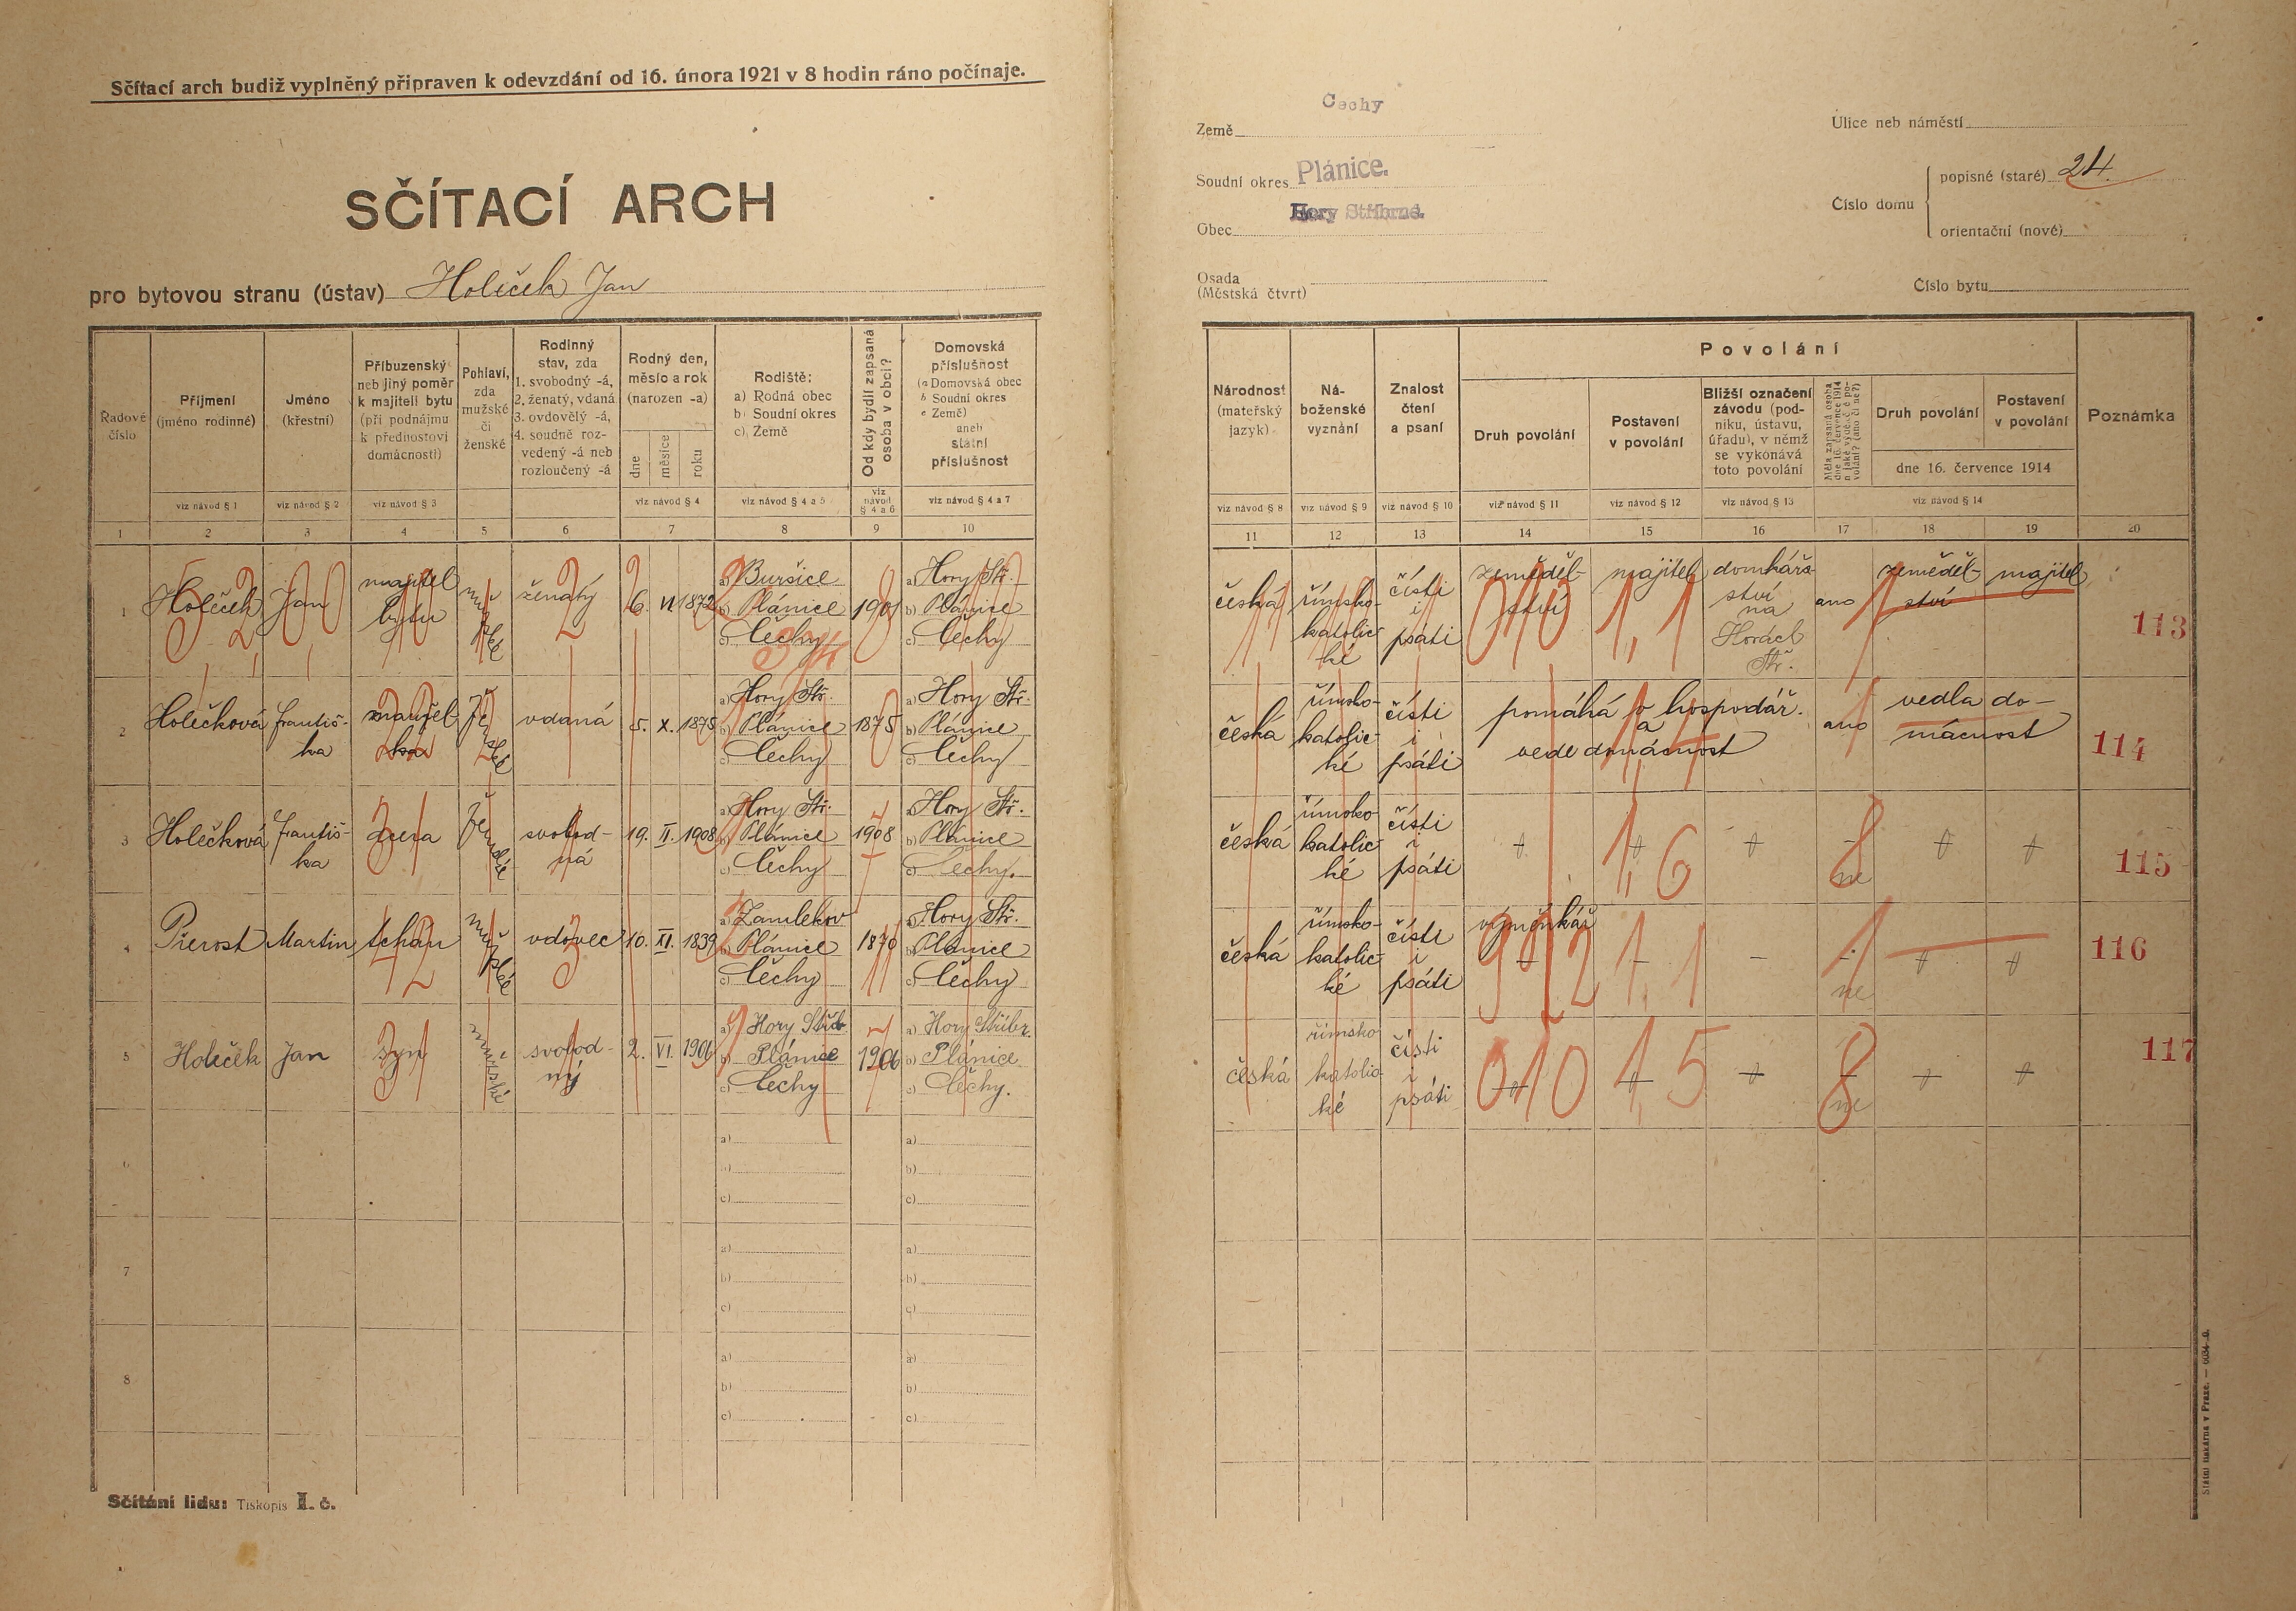 Sčítací arch budiž vyplněný připraven k odevzdání od 16. února 1921 v 8 hodin ráno počínaje.
SČÍTACÍ ARCH
pro bytovou stranu (ústav) Holeček Jan
Země Čechy
Soudní okres Plánice.
Obec Hory Stříbrné.
Osada
(Městská čtvrt)
Ulice neb náměstí
Číslo domu
popisné (staré) 24.
orientační (nové)
Číslo bytu
Řadové číslo
Příjmení
(jméno rodinné)
viz návod § 1
Jméno
(křestní)
viz návod § 2
Příbuzenský
neb jiný poměr
k majiteli bytu
(při podnájmu
k přednostovi
domácnosti)
viz návod § 3
Pohlaví,
zda
mužské
či
ženské
Rodinný
stav, zda
1. svobodný -á,
2. ženatý, vdaná
3. ovdovělý -á,
4. soudně roz-
vedený -á neb
rozloučený -á
Rodný den,
měsíc a rok
(narozen -a)
dne
měsíce
roku
viz návod § 4
Rodiště:
a) Rodná obec
b) Soudní okres
c) Země
viz návod § 4 a 5
Od kdy bydlí zapsaná
osoba v obci?
viz
návod
§ 4 a 6
Domovská
příslušnost
(a Domovská obec
b Soudní okres
c Země)
aneb
státní
příslušnost
viz návod § 4 a 7
Národnost
(mateřský
jazyk)
viz návod § 8
Ná-
boženské
vyznání
viz návod § 9
Znalost
čtení
a psaní
viz návod § 10
Povolání
Druh povolání
viz návod § 11
Postavení
v povolání
viz návod § 12
Bližší označení
závodu (pod-
niku, ústavu,
úřadu), v němž
se vykonává
toto povolání
viz návod § 13
Druh povolání
Postavení
v povolání
dne 16. července 1914
viz návod § 14
Poznámka
1 2 3 4 5 6 7 8 9 10 11 12 13 14 15 16 17 18 19 20
1 Holeček Jan majitel bytu mužské ženatý 6. VI. 1872
a) Buršice
b) Plánice
c) Čechy
1901
a) Hory Stř.
b) Plánice
c) Čechy
česká římsko-katolic-ké čísti i psáti zeměděl-ství majitel domkářs-ství na Horách Stř. ano zeměděl-ství majitel 113
2 Holečková Františ-ka manžel-ka ženské vdaná 5. X. 1875
a) Hory Stř.
b) Plánice
c) Čechy
1875
a) Hory Stř.
b) Plánice
c) Čechy
česká římsko-katolic-ké čísti i psáti pomáhá v hospodář. a vede domácnost ano vedla do-mácnost 114
3 Holečková Františ-ka dcera ženské svobod-ná 19. II. 1908
a) Hory Stř.
b) Plánice
c) Čechy
1908
a) Hory Stř.
b) Plánice
c) Čechy.
česká římsko-katolic-ké čísti i psáti ne 115
4 Martin tchán mužské vdovec 10. XI. 1839
a) Zamlekov
b) Plánice
c) Čechy
1870
a) Hory Stř.
b) Plánice
c) Čechy
česká římsko-katolic-ké čísti i psáti výměnkář ne 116
5 Holeček Jan syn mužské svobod-ný 2. VI. 1906
a) Hory Stříb.
b) Plánice
c) Čechy
1906
a) Hory Stříbr.
b) Plánice
c) Čechy.
česká římsko katolic-ké čísti i psáti ne 117
6
a)
b)
c)
a)
b)
c)
7
a)
b)
c)
a)
b)
c)
8
a)
b)
c)
a)
b)
c)
Sčítání lidu: Tiskopis I. č.
Státní tiskárna v Praze.